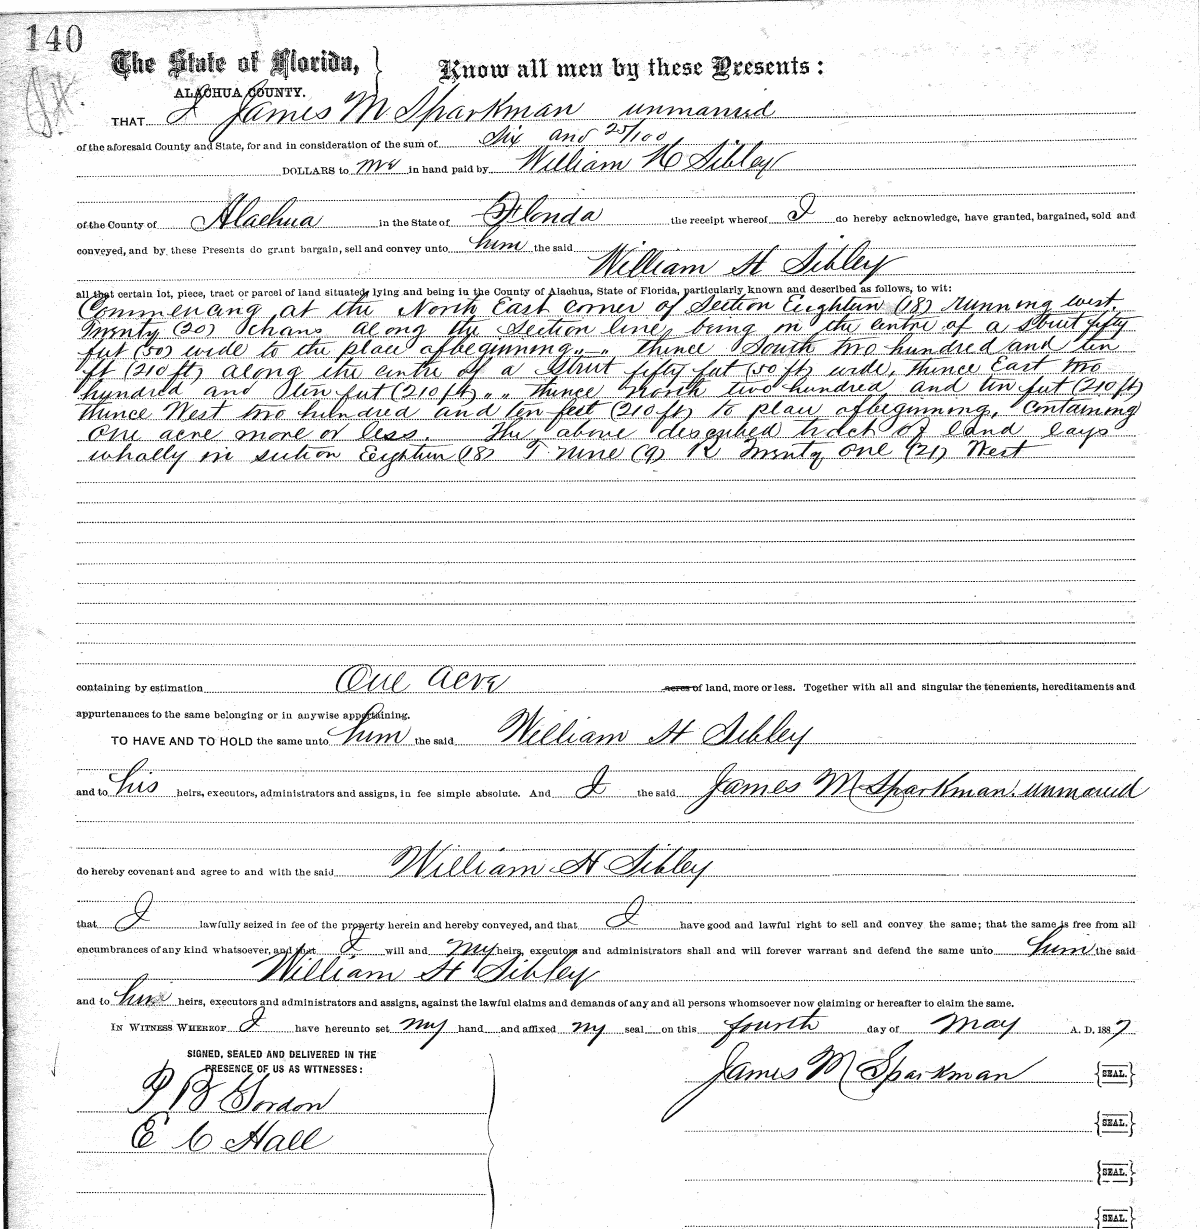 140
The State of Florida, } Know all men by these Presents:
ALACHUA COUNTY.
THAT I James M Sparkman unmarried
of the aforesaid County and State, for and in consideration of the sum of Six and 25/100
DOLLARS to me in hand paid by William H Sibley
of the County of Alachua in the State of Florida the receipt whereof I do hereby acknowledge, have granted, bargained, sold and
conveyed, and by these Presents do grant bargain, sell and convey unto him the said
William H Sibley
all that certain lot, piece, tract or parcel of land situated, lying and being in the County of Alachua, State of Florida, particularly known and described as follows, to wit:
Commencing at the North East corner of Section Eighteen (18) running west
Twenty (20) Chans along the Section line, being in the centre of a Street fifty
feet (50) wide to the place of beginning, „ „ thence South two hundred and ten
ft (210 ft) along the centre of a Street fifty feet (50 ft) wide, thence East two
hundred and ten feet (210 ft) „ „ thence North two hundred and ten feet (210 ft)
thence West two hundred and ten feet (210 ft) to place of beginning, Containing
One acre more or less. The above described track of land lays
whally in section Eighteen (18) T nine (9) R Twenty one (21) West
containing by estimation One Acre acres of land, more or less. Together with all and singular the tenements, hereditaments and
appurtenances to the same belonging or in anywise appertaining.
TO HAVE AND TO HOLD the same unto him the said William H Sibley
and to his heirs, executors, administrators and assigns, in fee simple absolute. And I the said James M Sparkman. unmarried
do hereby covenant and agree to and with the said William H Sibley
that I lawfully seized in fee of the property herein and hereby conveyed, and that I have good and lawful right to sell and convey the same; that the same is free from all
encumbrances of any kind whatsoever, and that I will and my heirs, executors and administrators shall and will forever warrant and defend the same unto him the said
William H Sibley
and to him heirs, executors and administrators and assigns, against the lawful claims and demands of any and all persons whomsoever now claiming or hereafter to claim the same.
IN WITNESS WHEREOF I have hereunto set my hand and affixed my seal on this fourth day of May A. D. 1887
SIGNED, SEALED AND DELIVERED IN THE
PRESENCE OF US AS WITNESSES:
James M Sparkman {SEAL.}
P B Gordon
{SEAL.}
E C Hall
{SEAL.}
{SEAL.}